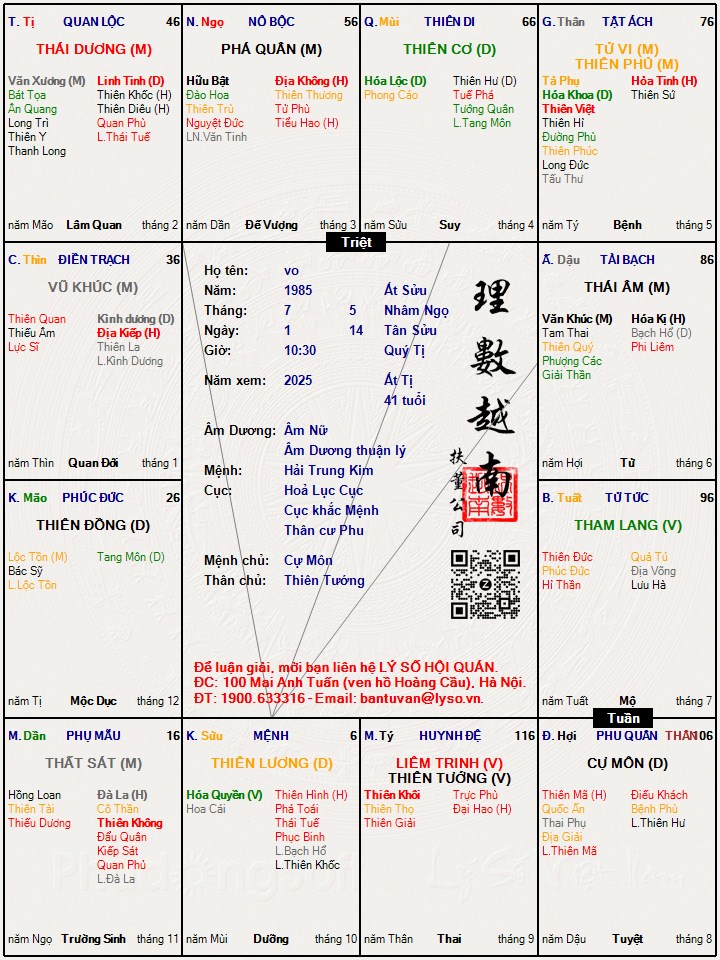 T. Tị QUAN LỘC 46
THÁI DƯƠNG (M)
Văn Xương (M) Linh Tinh (D)
Bát Tọa Thiên Khốc (H)
Ân Quang Thiên Diêu (H)
Long Trì Quan Phù
Thiên Y L.Thái Tuế
Thanh Long
năm Mão Lâm Quan tháng 2
N. Ngọ NÔ BỘC 56
PHÁ QUÂN (M)
Hữu Bật Địa Không (H)
Đào Hoa Thiên Thương
Thiên Trù Tử Phù
Nguyệt Đức Tiểu Hao (H)
LN.Văn Tinh
năm Dần Đế Vượng tháng 3
Q. Mùi THIÊN DI 66
THIÊN CƠ (D)
Hóa Lộc (D) Thiên Hư (D)
Phong Cáo Tuế Phá
Tướng Quân
L.Tang Môn
năm Sửu Suy tháng 4
G. Thân TẬT ÁCH 76
TỬ VI (M)
THIÊN PHỦ (M)
Tả Phụ Hỏa Tinh (H)
Hóa Khoa (D) Thiên Sứ
Thiên Việt
Thiên Hỉ
Đường Phù
Thiên Phúc
Long Đức
Tấu Thư
năm Tý Bệnh tháng 5
Triệt
C. Thìn ĐIỀN TRẠCH 36
VŨ KHÚC (M)
Thiên Quan Kình dương (D)
Thiếu Âm Địa Kiếp (H)
Lực Sĩ Thiên La
L.Kình Dương
năm Thìn Quan Đới tháng 1
Họ tên: vo
Năm: 1985 Ất Sửu
Tháng: 7 5 Nhâm Ngọ
Ngày: 1 14 Tân Sửu
Giờ: 10:30 Quý Tị
Năm xem: 2025 Ất Tị
41 tuổi
Âm Dương: Âm Nữ
Âm Dương thuận lý
Mệnh: Hải Trung Kim
Cục: Hoả Lục Cục
Cục khắc Mệnh
Thân cư Phu
Mệnh chủ: Cự Môn
Thân chủ: Thiên Tướng
理數越南
扶董公司
Để luận giải, mời bạn liên hệ LÝ SỐ HỘI QUÁN.
ĐC: 100 Mai Anh Tuấn (ven hồ Hoàng Cầu), Hà Nội.
ĐT: 1900.633316 - Email: bantuvan@lyso.vn.
Ấ. Dậu TÀI BẠCH 86
THÁI ÂM (M)
Văn Khúc (M) Hóa Kị (H)
Tam Thai Bạch Hổ (D)
Thiên Quý Phi Liêm
Phượng Các
Giải Thần
năm Hợi Tử tháng 6
K. Mão PHÚC ĐỨC 26
THIÊN ĐỒNG (D)
Lộc Tồn (M) Tang Môn (D)
Bác Sỹ
L.Lộc Tồn
năm Tị Mộc Dục tháng 12
B. Tuất TỬ TỨC 96
THAM LANG (V)
Thiên Đức Quả Tú
Phúc Đức Địa Võng
Hỉ Thần Lưu Hà
năm Tuất Mộ tháng 7
Tuần
M. Dần PHỤ MẪU 16
THẤT SÁT (M)
Hồng Loan Đà La (H)
Thiên Tài Cô Thần
Thiếu Dương Thiên Không
Đẩu Quân
Kiếp Sát
Quan Phủ
L.Đà La
năm Ngọ Trường Sinh tháng 11
K. Sửu MỆNH 6
THIÊN LƯƠNG (D)
Hóa Quyền (V) Thiên Hình (H)
Hoa Cái Phá Toái
Thái Tuế
Phục Binh
L.Bạch Hổ
L.Thiên Khốc
năm Mùi Dưỡng tháng 10
M. Tý HUYNH ĐỆ 116
LIÊM TRINH (V)
THIÊN TƯỚNG (V)
Thiên Khôi Trực Phù
Thiên Thọ Đại Hao (H)
Thiên Giải
năm Thân Thai tháng 9
Đ. Hợi PHU QUÂN THÂN 106
CỰ MÔN (D)
Thiên Mã (H) Điếu Khách
Quốc Ấn Bệnh Phù
Thai Phụ L.Thiên Hư
Địa Giải
L.Thiên Mã
năm Dậu Tuyệt tháng 8